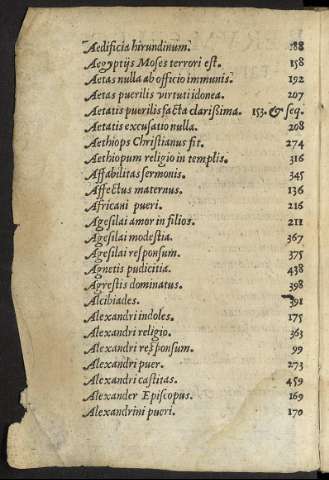 Aedificia hirundinum. 188
Aegyptijs Moses terrori est. 158
Aetas nulla ab officio immunis. 192
Aetas puerilis virtuti idonea. 207
Aetatis puerilis facta clarißima. 153. & seq.
Aetatis excusatio nulla. 208
Aethiops Christianus fit. 274
Aethiopum religio in templis. 316
Affabilitas sermonis. 345
Affectus maternus. 136
Africani pueri. 216
Agesilai amor in filios. 211
Agesilai modestia. 367
Agesilai responsum. 375
Agnetis pudicitia. 438
Agrestis dominatus. 398
Alcibiades. 391
Alexandri indoles. 175
Alexandri religio. 363
Alexandri responsum. 99
Alexandri puer. 273
Alexandri castitas. 459
Alexander Episcopus. 169
Alexandrini pueri. 170